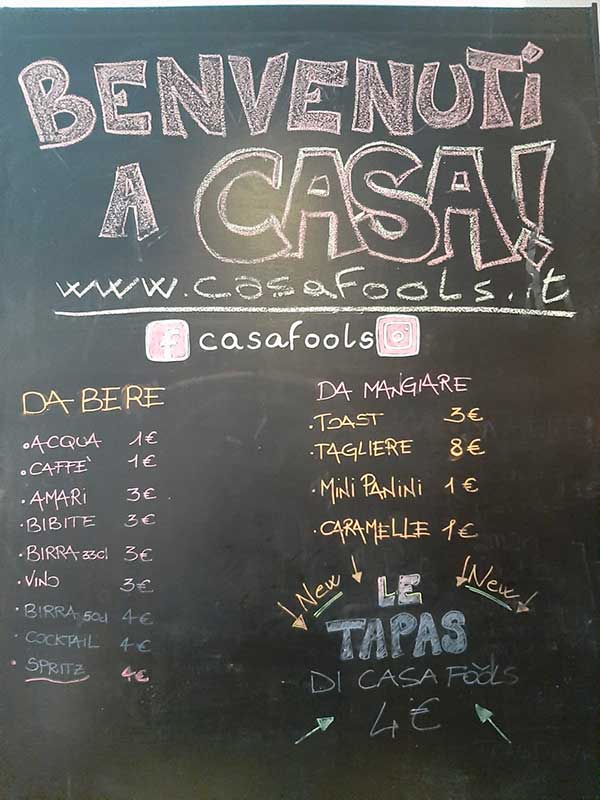 BENVENUTI
A CASA!
www.casafools.it
f casafools
DA BERE
• ACQUA 1€
• CAFFÈ 1€
• AMARI 3€
• BIBITE 3€
• BIRRA 33cl 3€
• VINO 3€
• BIRRA 50cl 4€
• COCKTAIL 4€
• SPRITZ 4€
DA MANGIARE
• TOAST 3€
• TAGLIERE 8€
• MINI PANINI 1€
• CARAMELLE 1€
New LE New
TAPAS
DI CASA FOOLS
4€